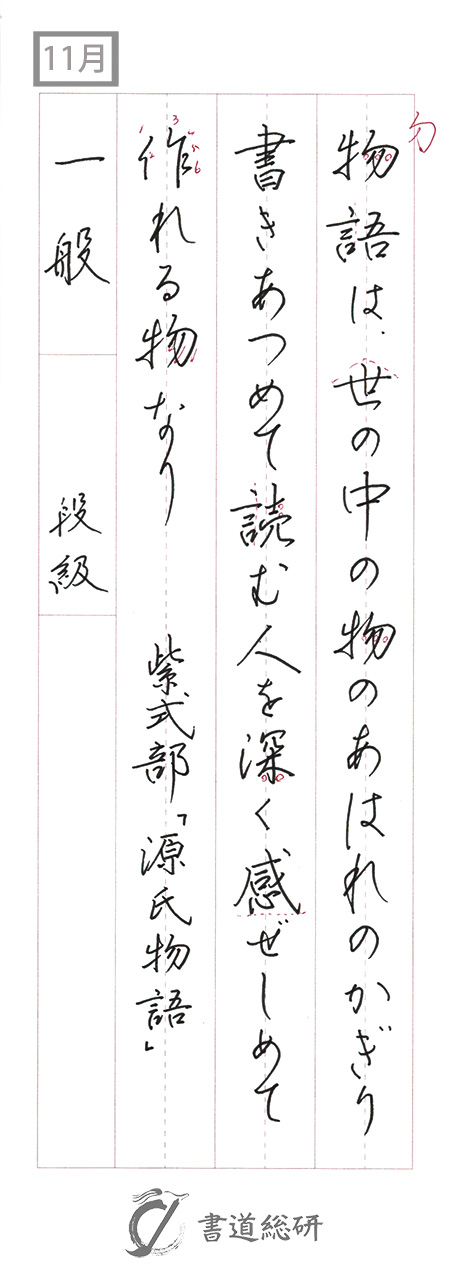 11月
物語は、世の中の物のあはれのかぎり
書きあつめて読む人を深く感ぜしめて
作れる物なり 紫式部「源氏物語」
一般 段級
勿
1 2 3 4 5 6
書道総研